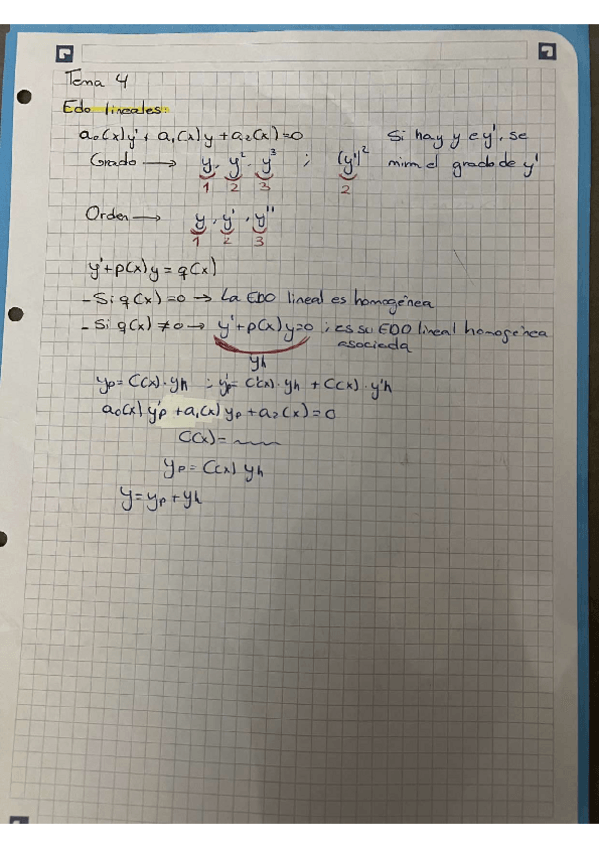 Tema 4
Edo lineales:
a₀(x)y' + a₁(x)y + a₂(x)=0
Si hay y e y', se
mira el grado de y'
Grado → y, y², y³ ; (y')²
1 2 3 2
Orden → y, y', y''
1 2 3
y'+p(x)y = q(x)
- Si q(x)=0 → La EDO lineal es homogénea
- Si q(x) ≠0 → y'+p(x)y=0 ; es su EDO lineal homogénea
asociada
yh
yp= C(x)·yh ; y'p= C'(x)·yh + C(x)·y'h
a₀(x) y'p +a₁(x) yp + a₂(x)=0
C(x)=
yp = C(x) yh
y= yp + yh